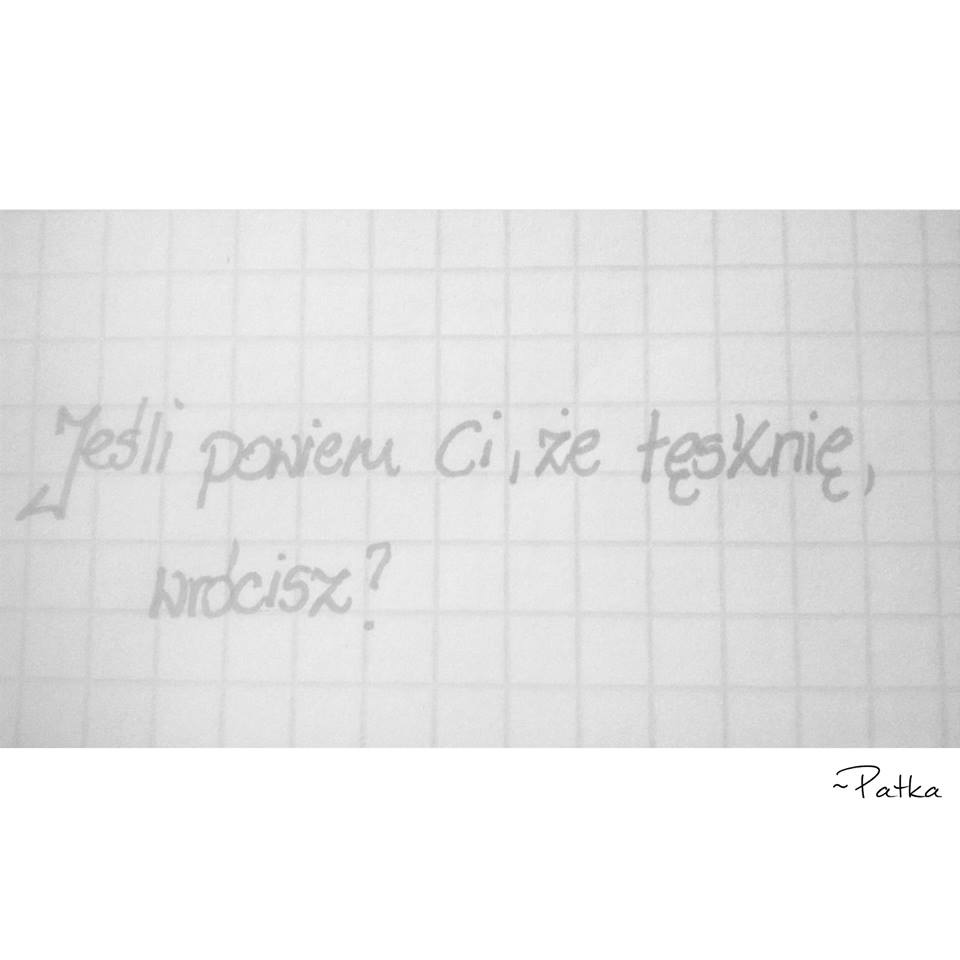 Jeśli powiem Ci, że tęsknię,
wrócisz?
~Patka